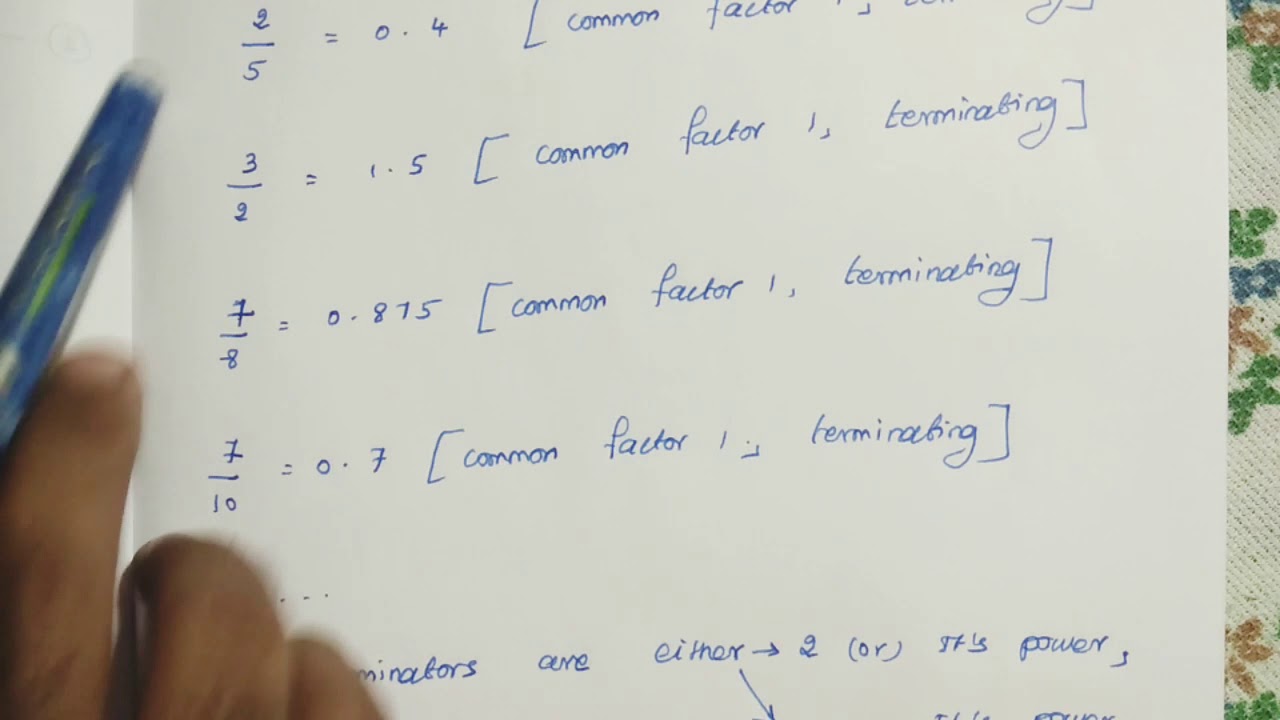 2/5 = 0.4 [common factor
3/2 = 1.5 [common factor 1, terminating]
7/8 = 0.875 [common factor 1, terminating]
7/10 = 0.7 [common factor 1, terminating]
...
minators are either → 2 (or) It's power,
It's power